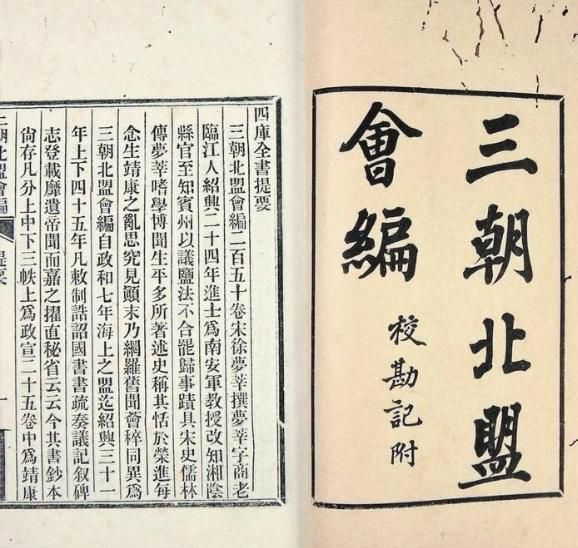 三朝北盟
會編
校勘記附
四庫全書提要
三朝北盟會編二百五十卷宋徐夢莘撰夢莘字商老
臨江人紹興二十四年進士爲南安軍教授改知湘陰
縣官至知賓州以議鹽法不合罷歸事蹟具宋史儒林
傳夢莘嗜學博聞生平多所著述史稱其恬於榮進每
念生靖康之亂思究見顚末乃綱羅舊聞會稡同異爲
三朝北盟會編自政和七年海上之盟迄紹興三十一
年上下四十五年凡敕制誥詔國書書疏奏議記叙碑
志登載靡遺帝聞而嘉之擢直秘省云云今其書鈔本
尙存凡分上中下三帙上爲政宣二十五卷中爲靖康
三朝北盟會編
提要
一